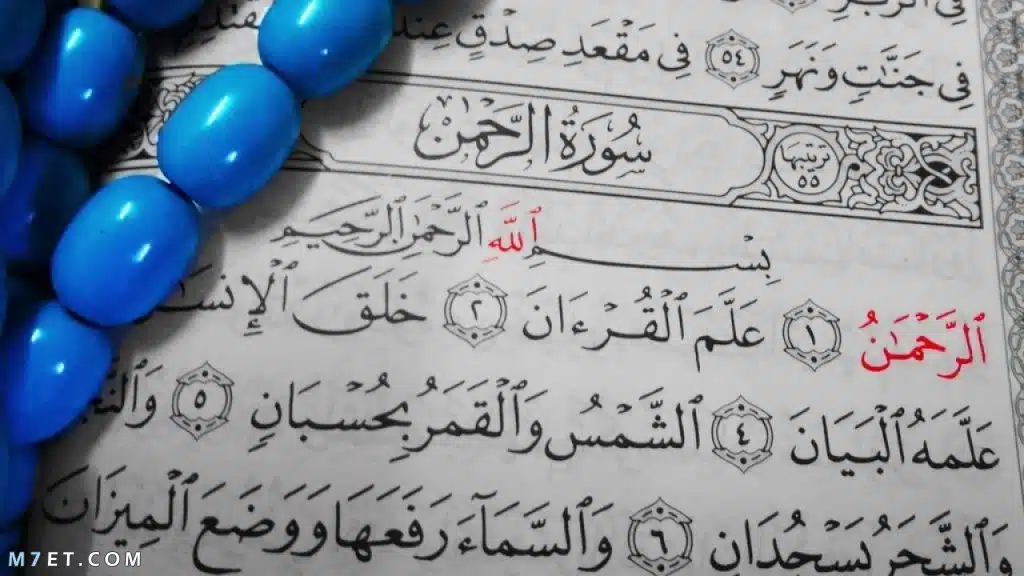 فِي جَنَّـٰتٍ وَنَهَرٍ ٥٤ فِي مَقْعَدِ صِدْقٍ عِندَ
سُورَةُ الرَّحْمَٰن
ترتيبها ٥٥
بِسْمِ ٱللَّهِ ٱلرَّحْمَٰنِ ٱلرَّحِيمِ
ٱلرَّحْمَٰنُ ١ عَلَّمَ ٱلْقُرْءَانَ ٢ خَلَقَ
عَلَّمَهُ ٱلْبَيَانَ ٤ ٱلشَّمْسُ وَٱلْقَمَرُ بِحُسْبَانٍ ٥
وَٱلشَّجَرُ يَسْجُدَانِ ٦ وَٱلسَّمَآءَ رَفَعَهَا وَوَضَعَ ٱلْمِيزَانَ
M7ET.COM